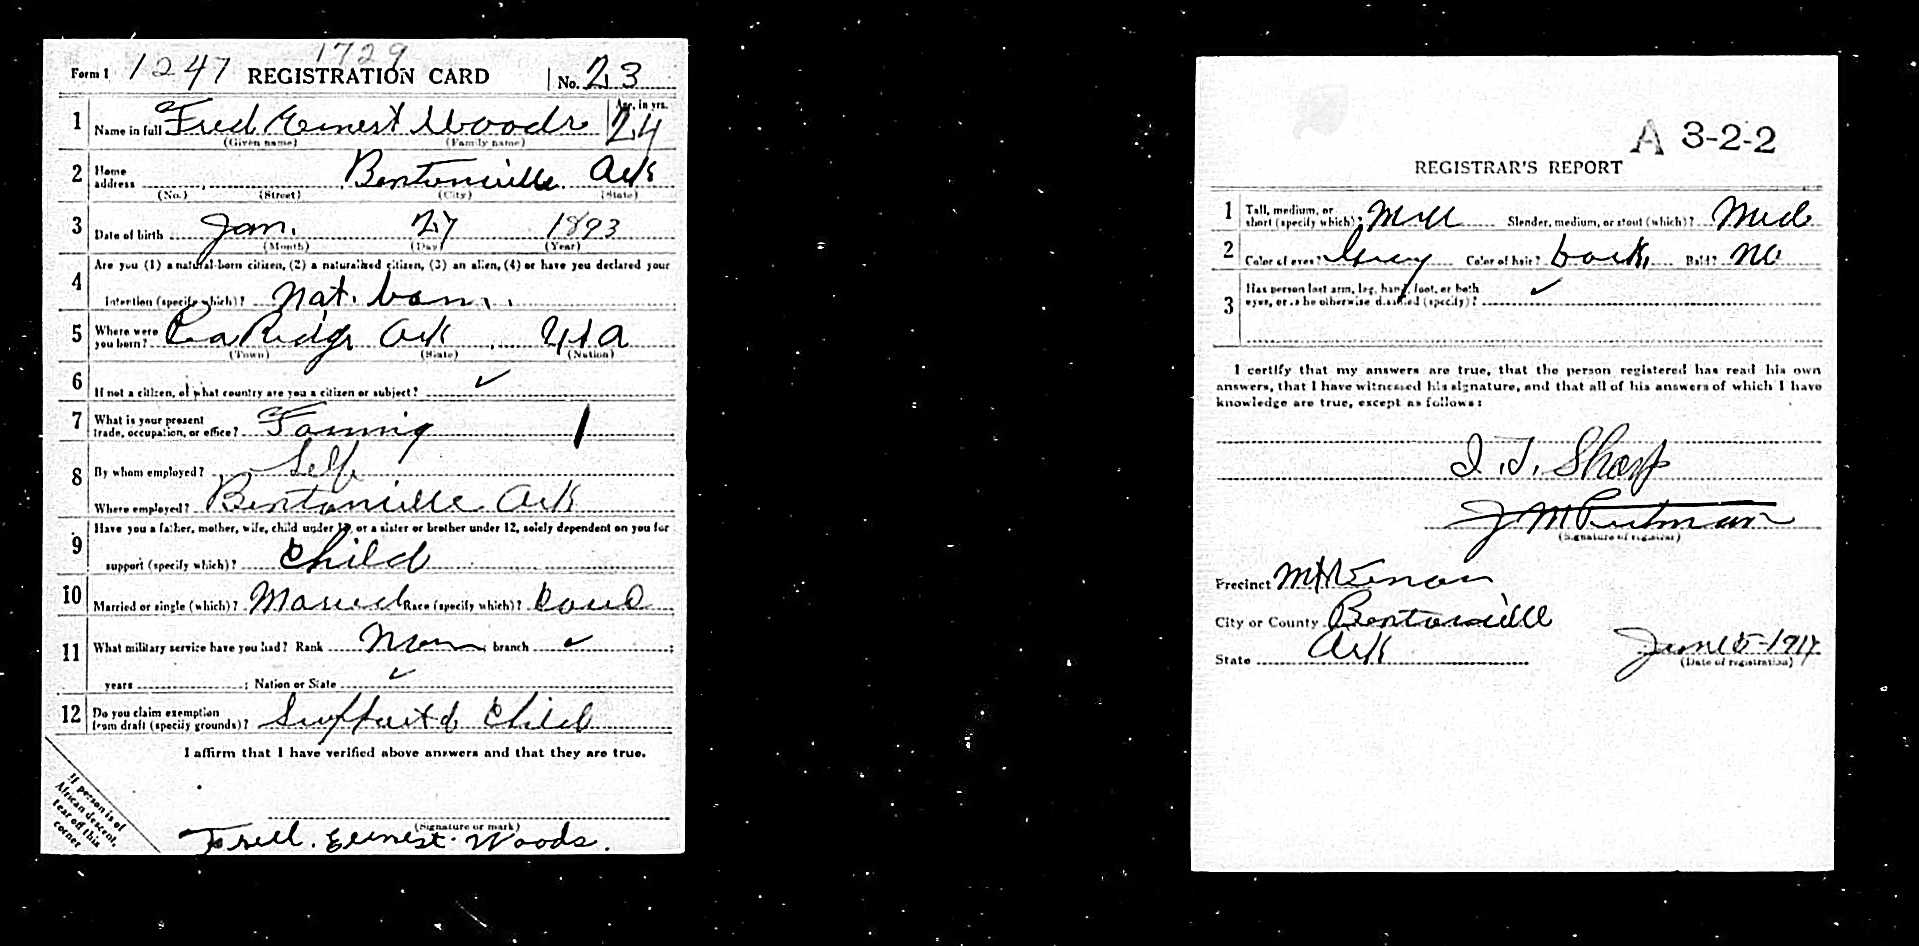 1729
Form 1 1247 REGISTRATION CARD No. 23
1 Name in full Fred Ernest Woods Age, in yrs. 24
(Given name) (Family name)
2 Home address Bentonville Ark
(No.) (Street) (City) (State)
3 Date of birth Jan. 27 1893
(Month) (Day) (Year)
Are you (1) a natural-born citizen, (2) a naturalized citizen, (3) an alien, (4) or have you declared your
4 intention (specify which)? Nat. born
5 Where were you born? Pea Ridge Ark USA
(Town) (State) (Nation)
6 If not a citizen, of what country are you a citizen or subject? ✓
7 What is your present trade, occupation, or office? Farming
8 By whom employed? Self
Where employed? Bentonville Ark
Have you a father, mother, wife, child under 12, or a sister or brother under 12, solely dependent on you for
9 support (specify which)? Child
10 Married or single (which)? Married Race (specify which)? Cauc
11 What military service have you had? Rank None branch ✓ ;
years ; Nation or State ✓
12 Do you claim exemption from draft (specify grounds)? Child
I affirm that I have verified above answers and that they are true.
(Signature or mark)
Fred. Ernest. Woods.
If person is of
African descent,
tear off this
corner
A 3-2-2
REGISTRAR'S REPORT
1 Tall, medium, or short (specify which)? Slender, medium, or stout (which)? Med
2 Color of eyes? Gray Color of hair? Dark Bald? No
3 Has person lost arm, leg, hand, foot, or both eyes, or is he otherwise disabled (specify)? ✓
I certify that my answers are true, that the person registered has read his own
answers, that I have witnessed his signature, and that all of his answers of which I have
knowledge are true, except as follows:
I. T. Sharp
J M Putman
(Signature of registrar)
Precinct
City or County Bentonville
State Ark June 5-1917
(Date of registration)